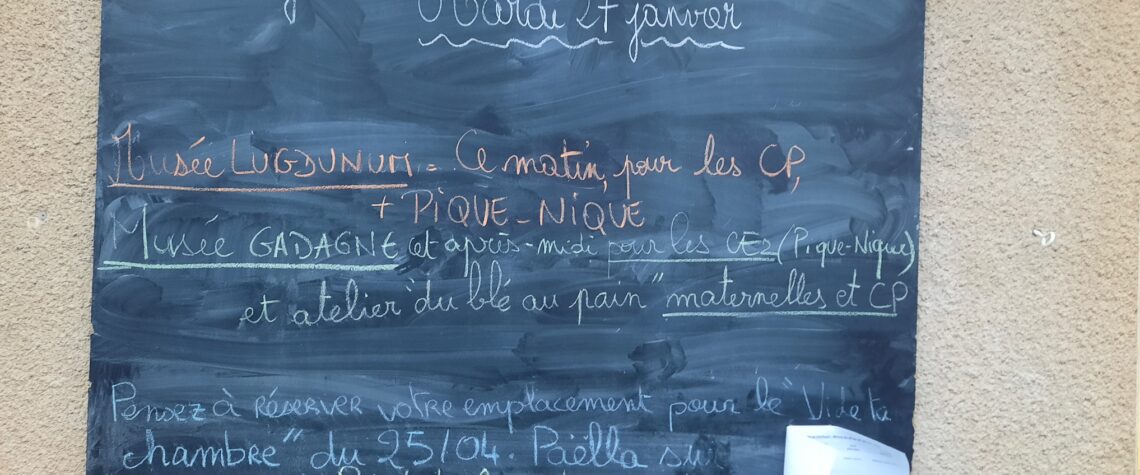 Mardi 27 janvier
Musée LUGDUNUM = Ce matin, pour les CP,
+ PIQUE-NIQUE
Musée GADAGNE et après-midi pour les CE2 (Pique-Nique)
et atelier "du blé au pain" maternelles et CP
Pensez à RÉSERVER votre emplacement pour le "Vide ta
chambre" du 25/04. Paëlla sur